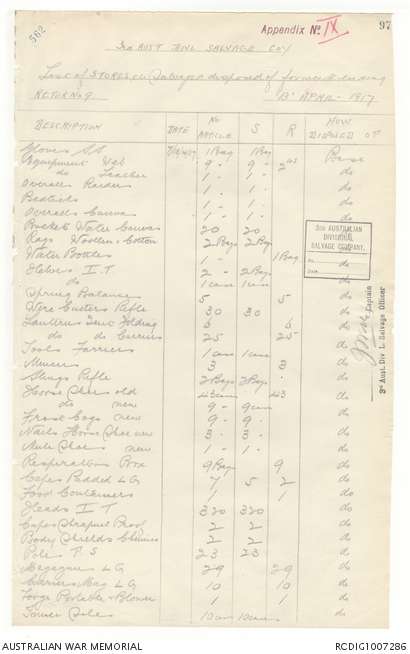 562
Appendix No IX
97
3rd AUST DIVL SALVAGE COY
List of STORES etc Salvaged disposed of for week ending
RETURN 9. 13 APRIL 1917
DESCRIPTION DATE No ARTICLE S R HOW DISPOSED OF
Gloves 1 Bag 1 Bag
Equipment Web 9 - 9 - do
do Leather 1 - 1 - do
Overalls 1 - 1 - do
1 - 1 - do
Overalls Canvas 1 - 1 - do
Buckets Water Canvas 20 20 do
Rags Woollen & Cotton 2 Bags 2 Bags
Water Bottles 1 - 1 Bag do
Helves I.T. 2 - 2 Bags do
do 1 case 1 case do
Spring Balance 5 5 do
Wire Cutters Rifle 30 30 do
Lanterns Folding do
do do 25 25 do
Tools Farriers 1 case 1 case do
3 3 do
Slings Rifle 2 Bags 2 Bags do
Horse Shoes old 43 do
do new 9 - 9 do
Frost Cogs new 9 - 9 - do
Nails Horse Shoe new 3 - 3 - do
Mule Shoes new 1 - 1 - do
Respirators Box 9 Bags 9 do
Capes Padded L G 7 5 2 do
Food Containers 1 1 do
Heads I T 320 320 do
Capes Shrapnel Proof 2 2 do
Body Shields 2 2 do
Pole T S 23 23 do
Magazine L G 29 29 do
Carriers Mag L G 10 10 do
Forge Portable & Blower 1 1 do
do
3RD AUSTRALIAN
DIVISIONAL
SALVAGE COMPANY.
No.
Date
Captain
3rd Aust. Div L. Salvage Officer
AUSTRALIAN WAR MEMORIAL
RCDIG1007286